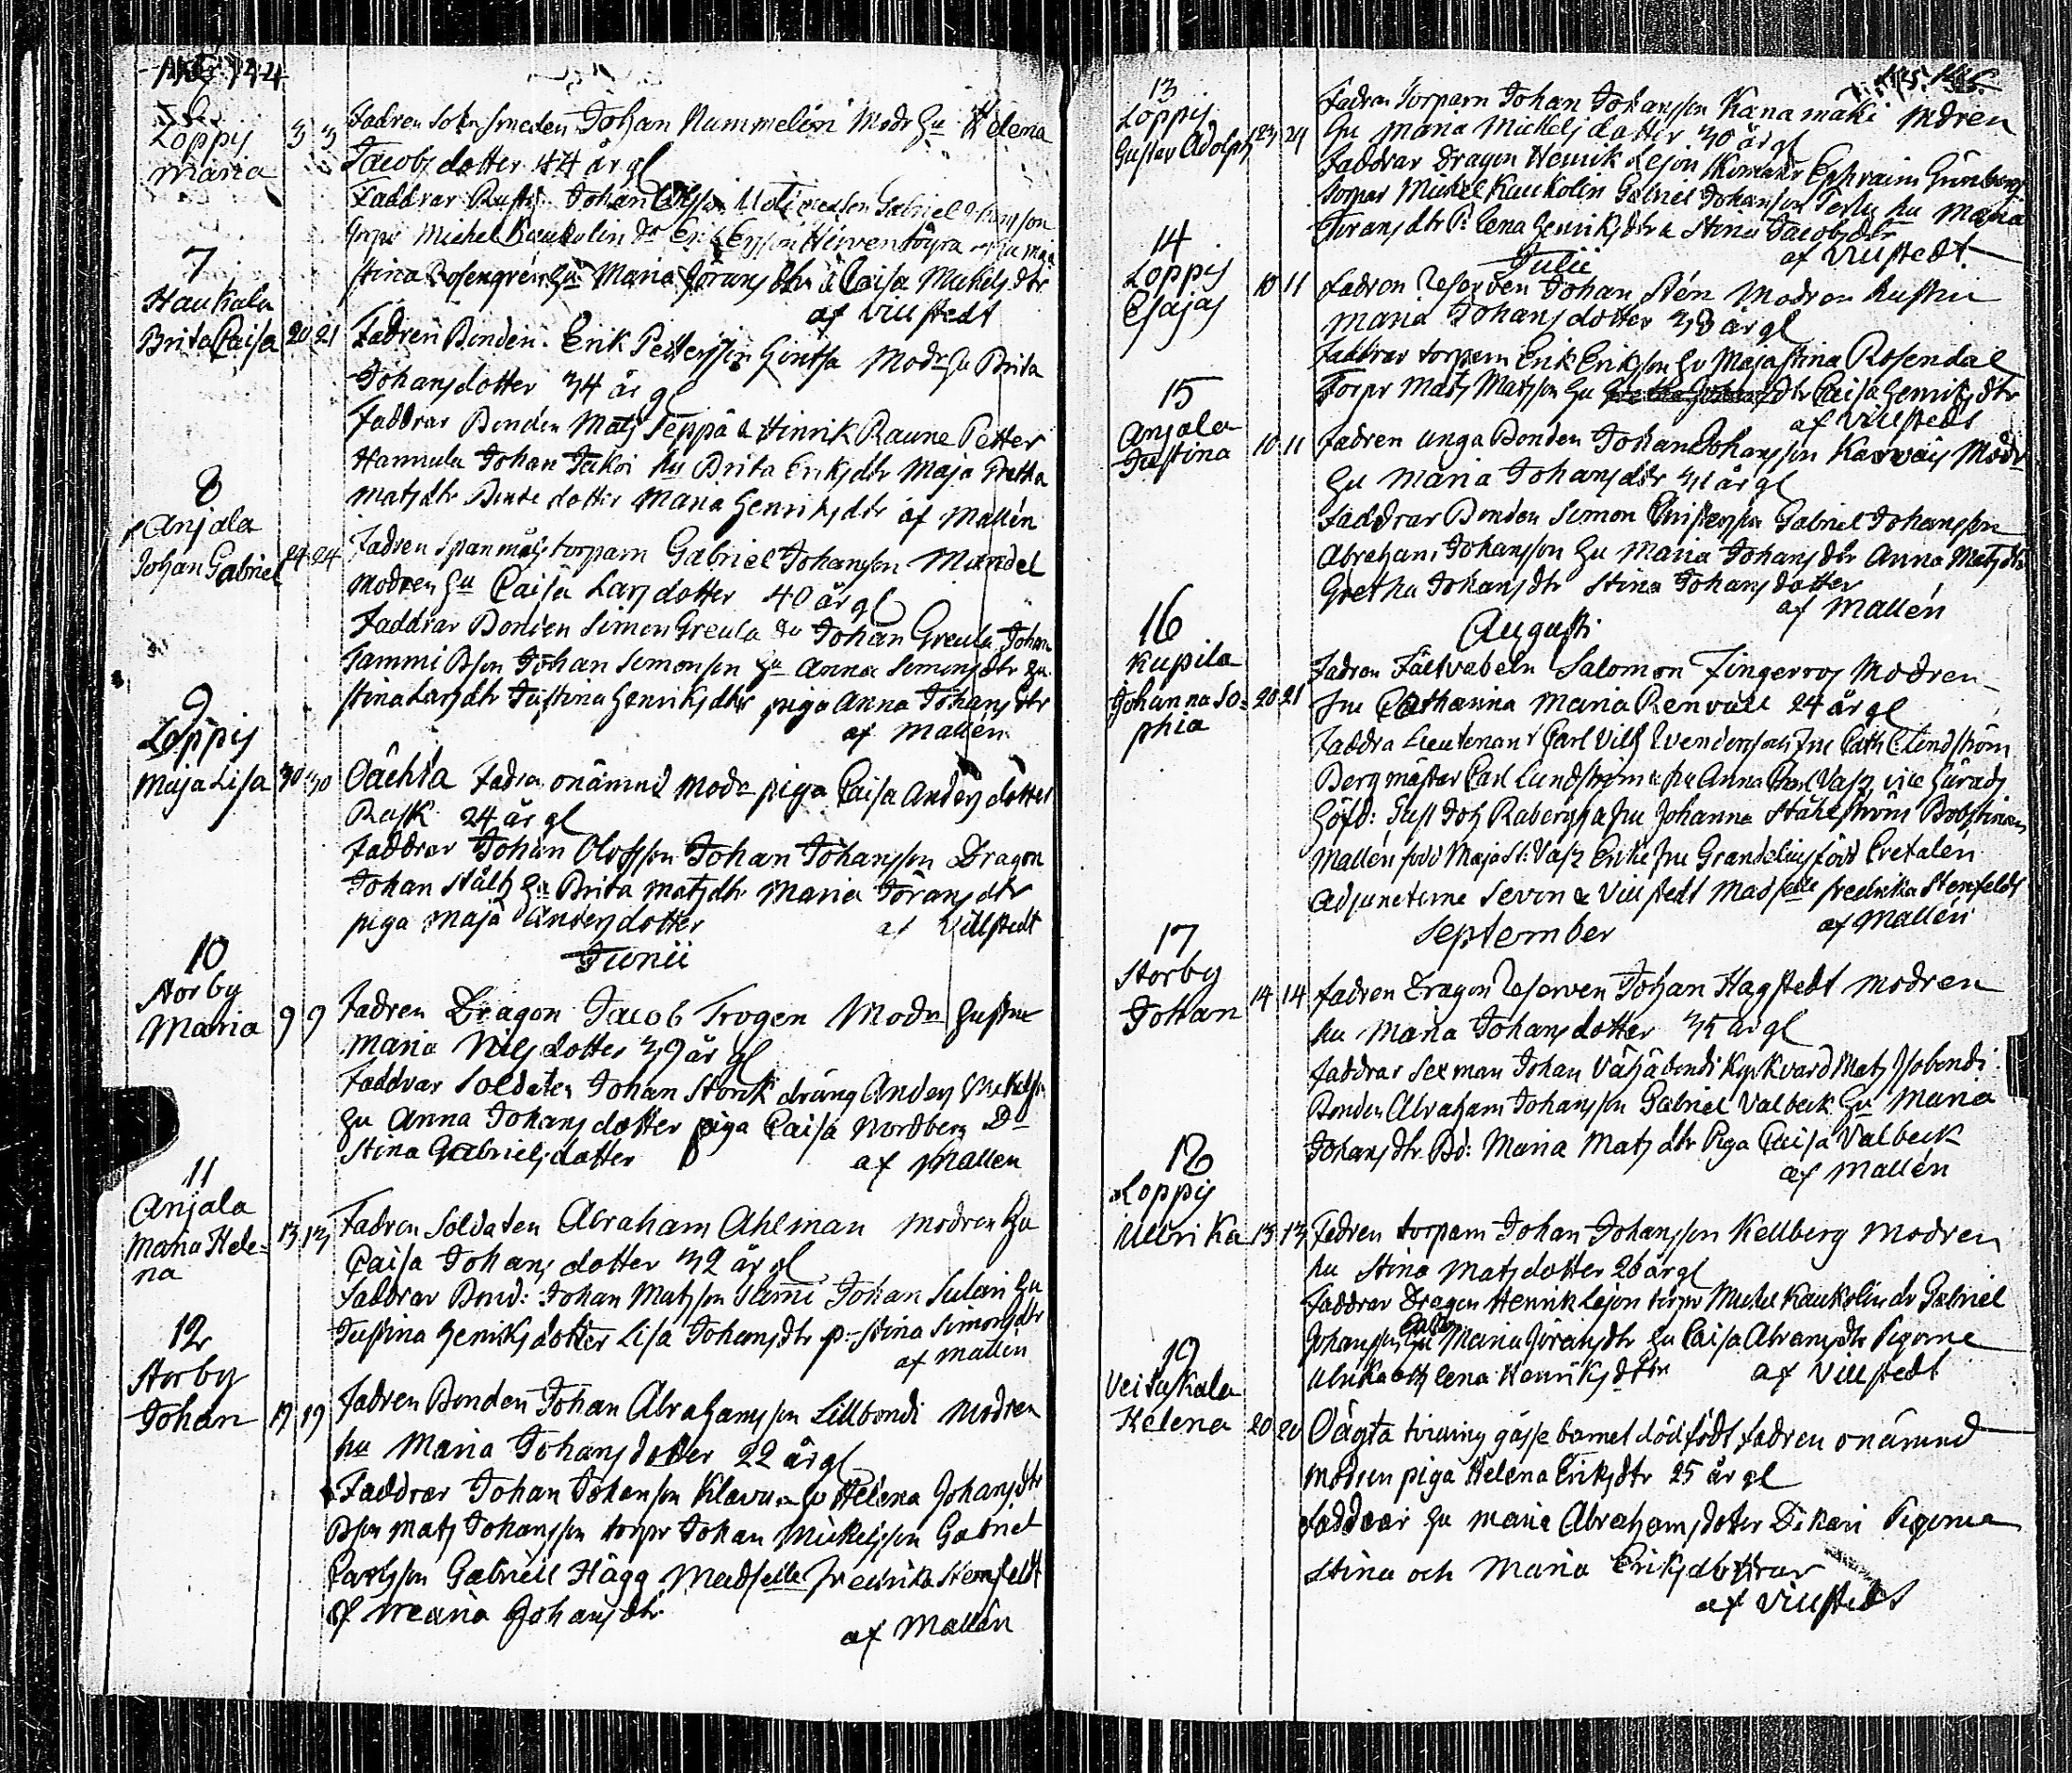 144
6
Loppis
Maria
3 3
Fadren Sokn Smeden Johan Nummelin Modr Hu Helena
Jacobs dotter 44 år gl
Faddrar Johan Gabriel Johansson
Michel Kaukolin
Stina Rosengren Hu Maria Görans dtr & Caisa Mickels dtr
af Villstedt
7
Haukala
Brita Caisa
20 21
Fadren Bonden Erik Pettersson Modr Hu Brita
Johans dotter 34 år gl
Faddrar Bonden Mats Seppä & Hinrik Raune Petter
Hannula Johan Jakoi hu Brita Eriks dtr Maja Gretha
Mats dtr Bonde dotter Maria Henriks dtr af Mallén
8
Anjala
Johan Gabriel
24 24
Fadren Spanmåls torparn Gabriel Johansson Mandel
Modren Hu Caisa Lars dotter 40 år gl
Faddrar Bonden Simon Greula Do Johan Greula Johan
Tammi Bson Johan Simonson Hu Anna Simons dtr Hu
Stina Lars dtr Justina Henriks dtr piga Anna Johans dtr
af Mallén
9
Loppis
Maja Lisa
30 30
Oächta Fadren onämnd Modr piga Caisa Anders dotter
Rask 24 år gl
Faddrar Johan Olofsson Johan Johansson Dragon
Johan Stålt Hu Brita Mats dtr Maria Görans dtr
piga Maja Anders dotter
af Villstedt
Junii
10
Storby
Maria
9 9
Fadren Dragon Jacob Trogen Modrn Hustru
Maria Nils dotter 39 år gl
Faddrar Soldaten Johan Stork dräng Anders Mickelss
Hu Anna Johans dotter piga Caisa Nordberg Do
Stina Gabriels dotter
af Mallen
11
Anjala
Maria Hele=
na
13 13
Fadren Soldaten Abraham Ahlman Modren Hu
Caisa Johans dotter 32 år gl
Faddrar Bond: Johan Matsson Johan Sulari Hu
Justina Henriks dotter Lisa Johans dtr p. Stina Simons dtr
af Mallén
12
Storby
Johan
19 19
Fadren Bonden Johan Abrahamsson Lillbondi Modren
hu Maria Johans dotter 22 år gl
Faddrar Johan Johansson Helena Johans dtr
Bson Mats Johansson torpr Johan Mickelsson Gabriel
Carlsson Gabriell Hägg Madselle Fredrika Stenfeldt
Maria Johans dtr
af Mallén
145
13
Loppis
Gustav Adolph
23 24
Fadren Torparn Johan Johansson Kanamäki Mdren
Hu Maria Mickels dotter 30 år gl
Faddrar Dragon Henrik Lejon Ephraim Grönberg
Torpar Mickel Kaukolin Gabriel Johansson hu Maria
Görans dtr P. Lena Henriks dtr & Stina Jacobs dtr
af Villstedt
Julii
14
Loppis
Esajas
10 11
Fadren Reserven Johan Stén Modren Hustru
Maria Johans dotter 38 år gl
Faddrar torparn Erik Eriksson Hu Maja Stina Rosendal
Torpr Mats Matsson Hu Caisa Henriks dtr
af Villstedt
15
Anjala
Justina
10 11
Fadren Unga Bonden Johan Johansson Modr
Hu Maria Johans dtr 31 år gl
Faddrar Bonden Simon Christersson Gabriel Johansson
Abraham Johansson Hu Maria Johans dtr Anna Mats dtr
Gretha Johans dtr Stina Johans dotter
af Mallén
Augusti
16
Kupila
Johanna So=
phia
20 21
Fadren Fältvebeln Salomon Fingerros Modren
Fru Catharina Maria Renvall 24 år gl
Faddra Lieutenant Carl Vilh Fru Cath C Lindström
Bergmästar Carl Lundström Anna vice Härads
Höfd: Gust Joh Fru Johanna Ståhlström
Mallén född Maja St: Enke Fru Grandelius född Cretalén
Adjuncterne Sevon & Villstedt Madselle Fredrika Stenfeldt
af Mallén
September
17
Storby
Johan
14 14
Fadren Dragon Reserven Johan Hagstedt Modren
hu Maria Johans dotter 35 år gl
Faddrar Sexman Johan Väsjäbondi Kyrkvard Mats Isobondi
Bonden Abraham Johansson Gabriel Valbeck Hu Maria
Johans dtr Bd: Maria Mats dtr Piga Caisa Valbeck
af Mallén
18
Loppis
Ullrika
13 13
Fadren torparn Johan Johansson Kellberg Modren
hu Stina Mats dotter 26 år gl
Faddrar Dragon Henrik Lejon torpr Mickel Kaukolin dr Gabriel
Johansson Hu Maria Görans dtr Hu Caisa Abrams dtr Pigorne
Ulrika och Lena Henriks dttr
af Villstedt
19
Veituskala
Helena
20 20
Oägta tvilling gosse barnet dödfödt fadren onämnd
Modren piga Helena Eriks dtr 25 år gl
Faddrar Hu Maria Abrahams dotter Dikari Pigorna
Stina och Maria Eriks dottrar
af Villstedt